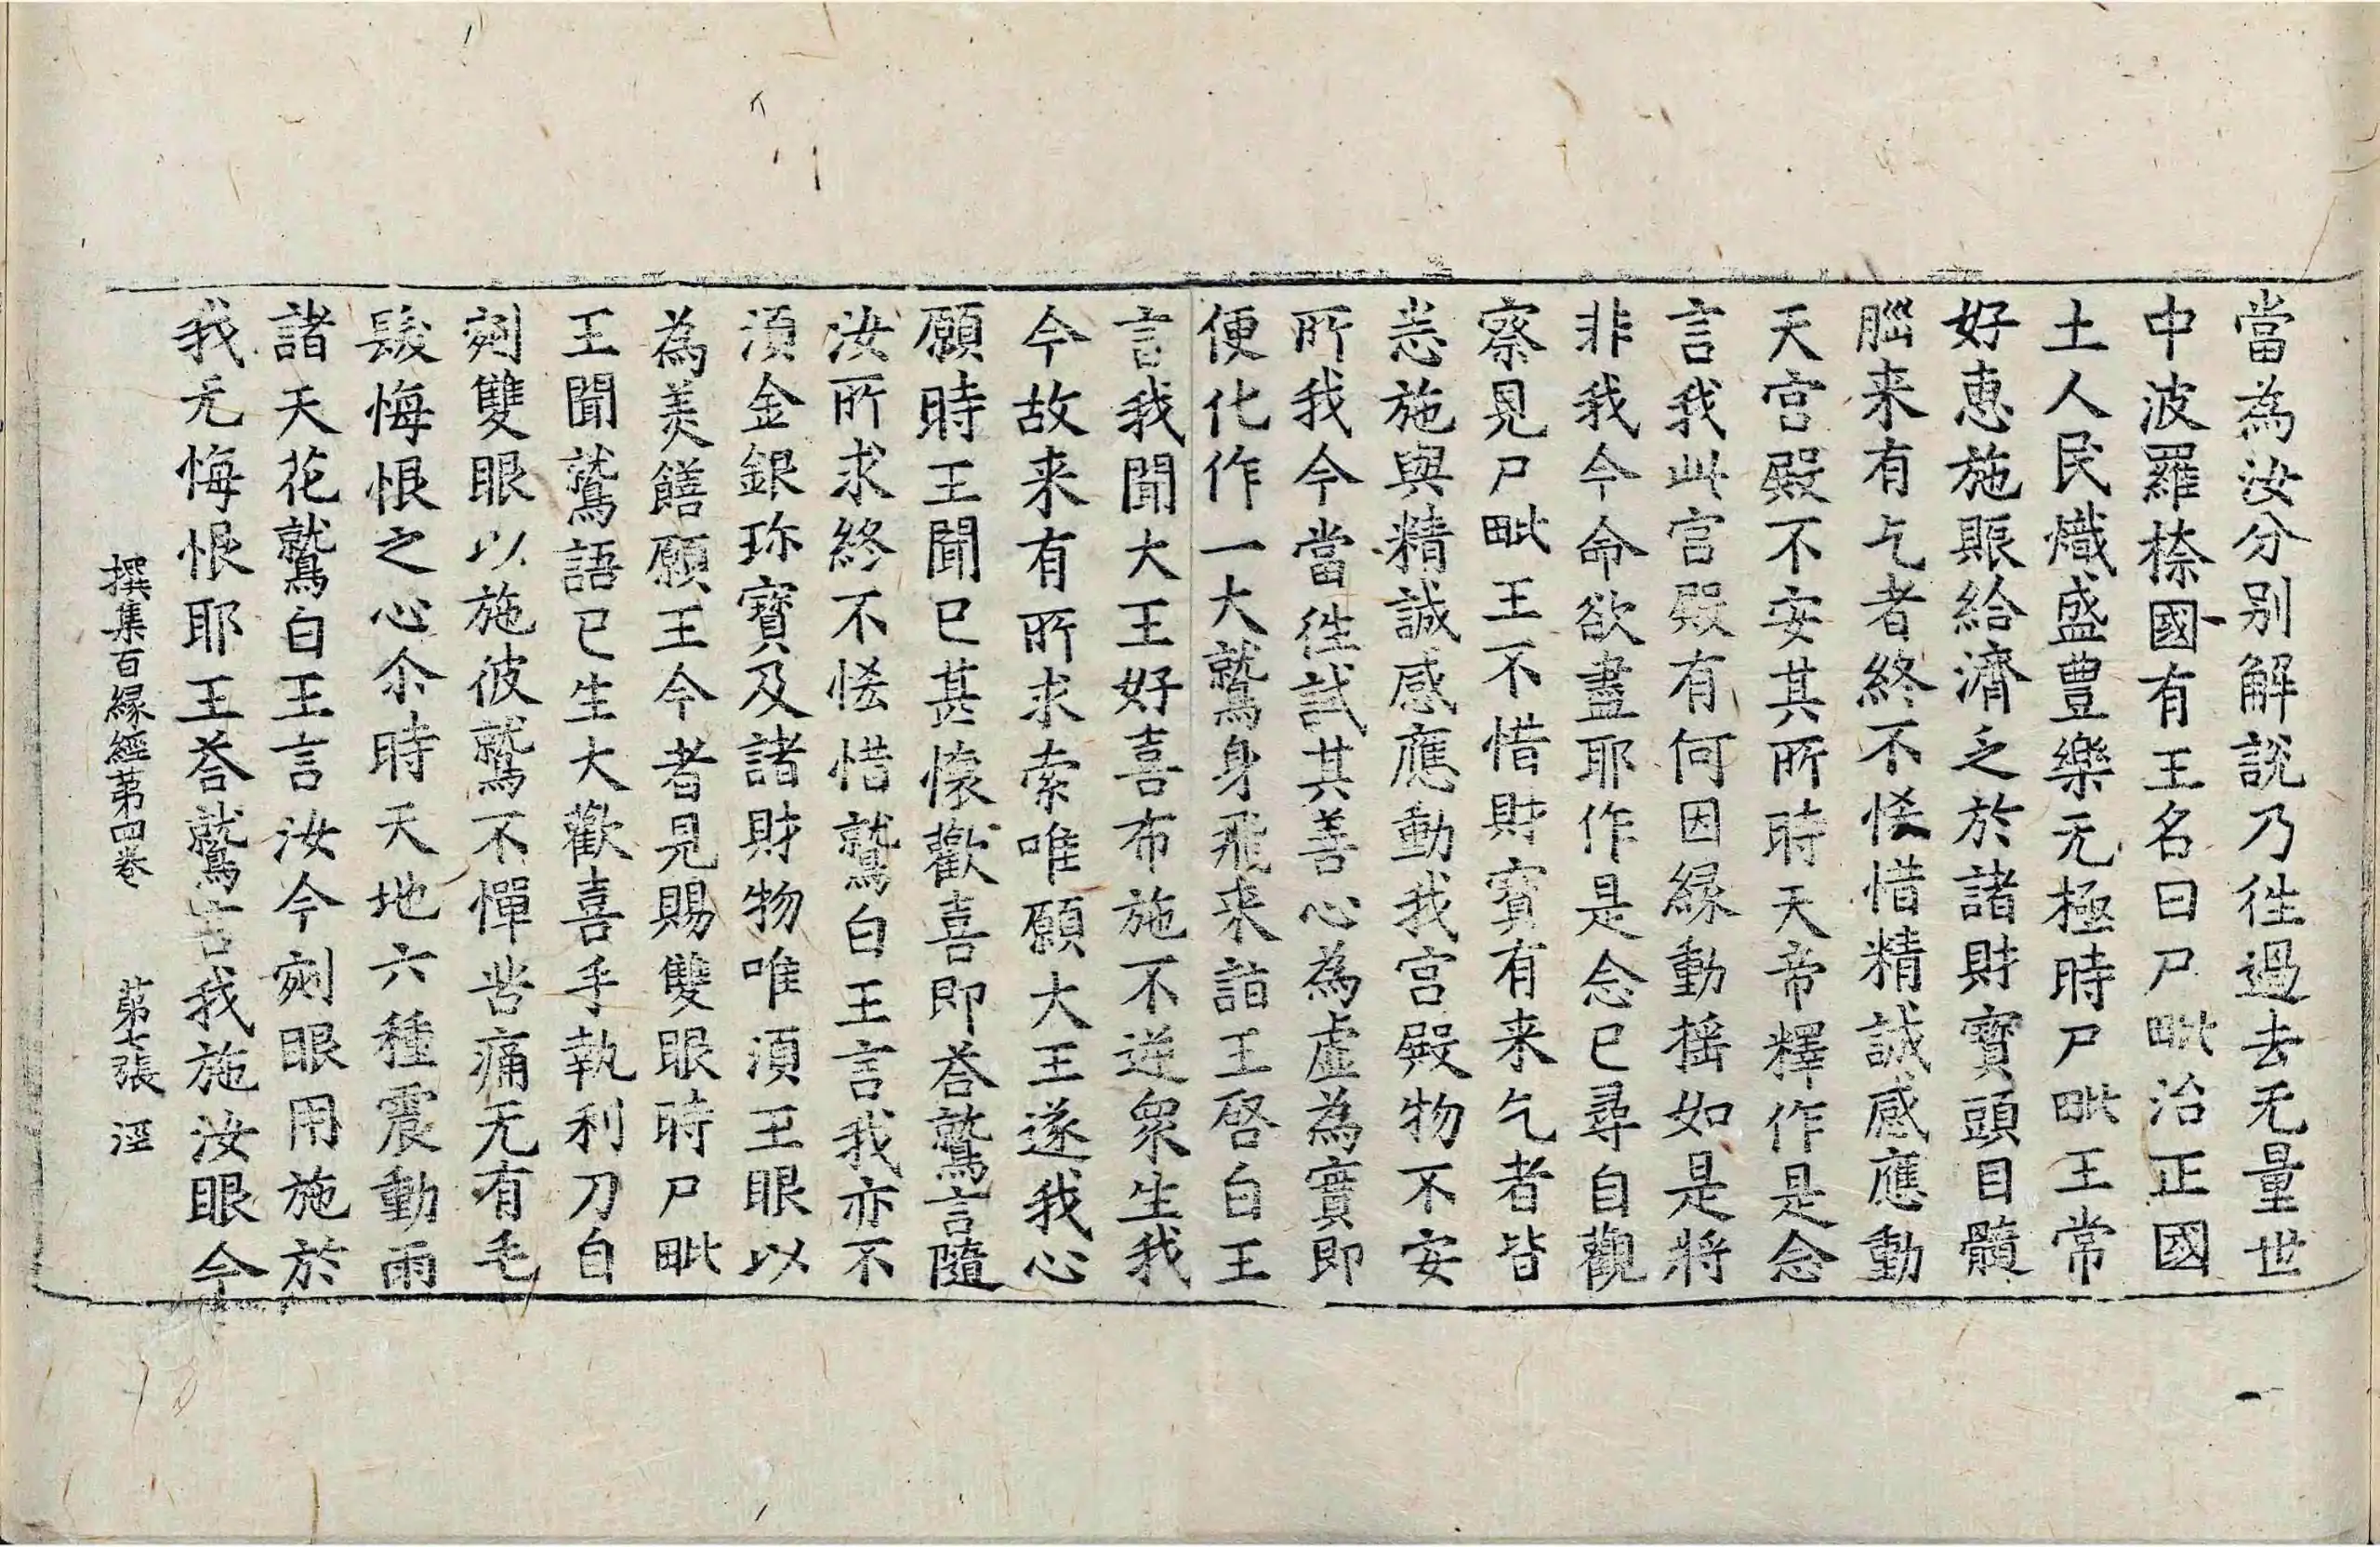 當為汝分别解說乃徃過去无量世
中波羅㮈國有王名曰尸毗治正國
土人民熾盛豊樂无極時尸毗王常
好惠施賑給濟乏於諸財寶頭目髓
腦来有乞者終不悋惜精誠感應動
天宫殿不安其所時天帝釋作是念
言我此宫殿有何因縁動揺如是將
非我今命欲盡耶作是念已尋自觀
察見尸毗王不惜財寳有来乞者皆
恚施與精誠感應動我宫殿物不安
所我今當徃試其善心為虚為實即
便化作一大鷲身飛来詣王啓白王
言我聞大王好喜布施不逆衆生我
今故来有所求索唯願大王遂我心
願時王聞已甚懐歡喜即荅鷲言隨
汝所求終不悋惜鷲白王言我亦不
湏金銀珎寶及諸財物唯湏王眼以
為美饍願王今者見賜雙眼時尸毗
王聞鷲語已生大歡喜手執利刀自
剜雙眼以施彼鷲不憚苦痛无有毛
髮悔恨之心尒時天地六種震動雨
諸天花鷲白王言汝今剜眼用施於
我无悔恨耶王荅鷲言我施汝眼今
撰集百縁經第四卷 第七張 涇